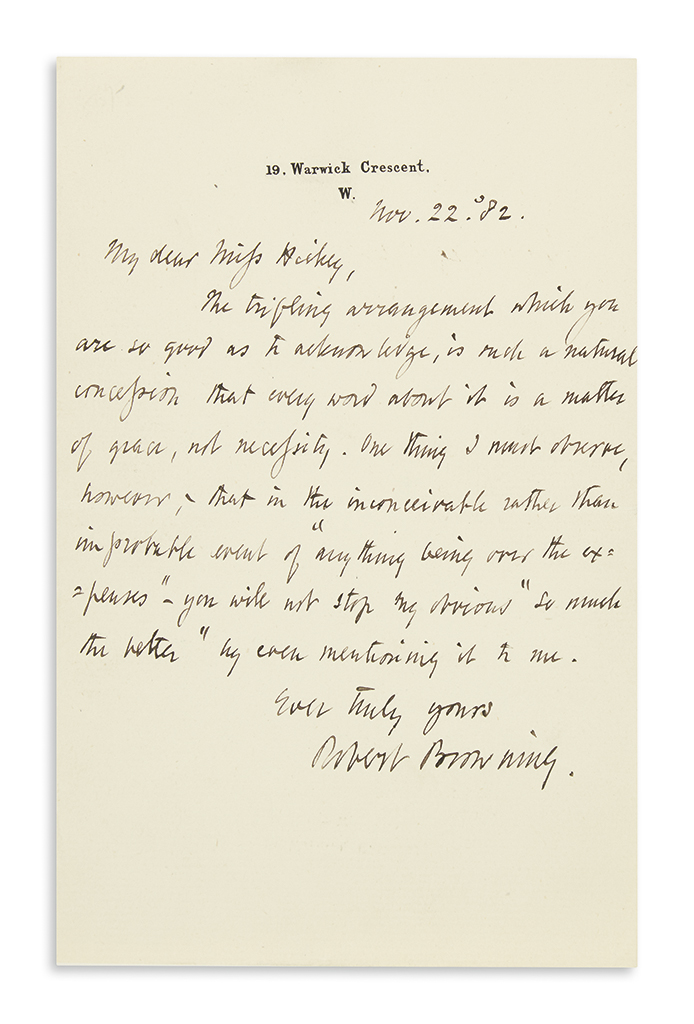 19. Warwick Crescent.
W.
Nov. 22. '82.
My dear Miss Hickey,
The trifling arrangement which you
are so good as to acknowledge, is such a natural
concession that every word about it is a matter
of grace, not necessity. One thing I must observe,
however, - that in the inconceivable rather than
improbable event of "anything being over the ex=
=penses" - you will not stop my obvious "so much
the better" by even mentioning it to me.
Ever truly yours
Robert Browning.